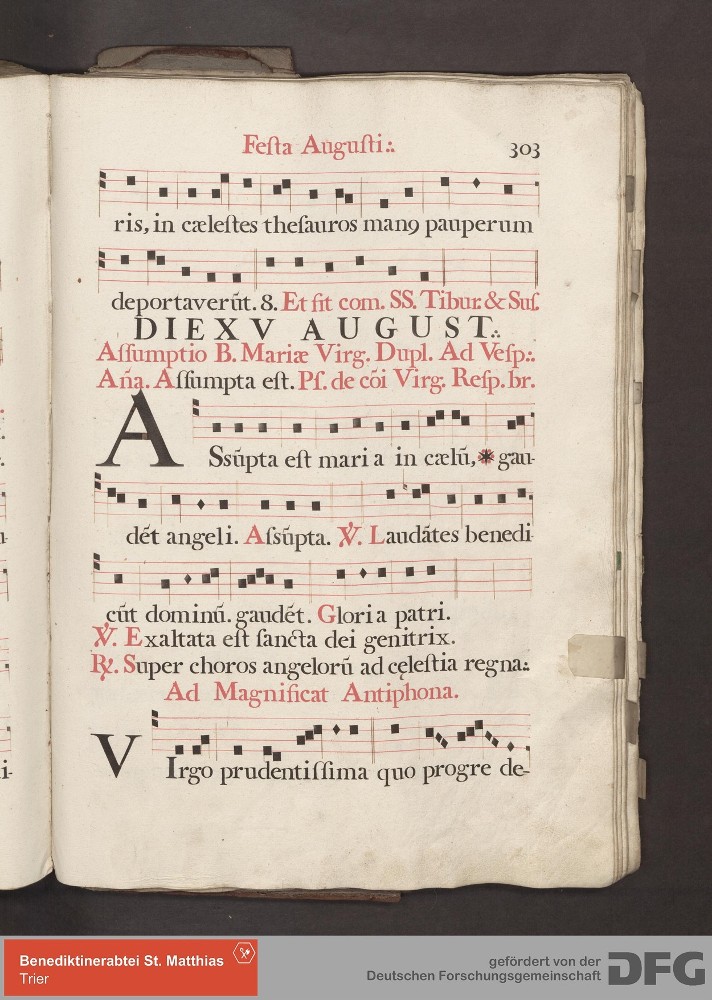 Feſta Auguſti:.
303
ris, in cæleſtes theſauros man9 pauperum
deportaverūt. 8. Et fit com. SS. Tibur. & Suſ.
DIE XV AUGUST:.
Aſſumptio B. Mariæ Virg. Dupl. Ad Veſp:.
Aña. Aſſumpta eſt. Pſ. de cōi Virg. Reſp. br.
ASsūpta eſt maria in cælū, * gau-
dēt angeli. Aſsūpta. ℣. Laudātes benedi-
cūt dominū. gaudēt. Gloria patri.
℣. Exaltata eſt ſancta dei genitrix.
℟. Super choros angelorū ad cęleſtia regna:.
Ad Magnificat Antiphona.
VIrgo prudentiſſima quo progre de-
Benediktinerabtei St. Matthias
Trier
gefördert von der
Deutschen Forschungsgemeinschaft
DFG